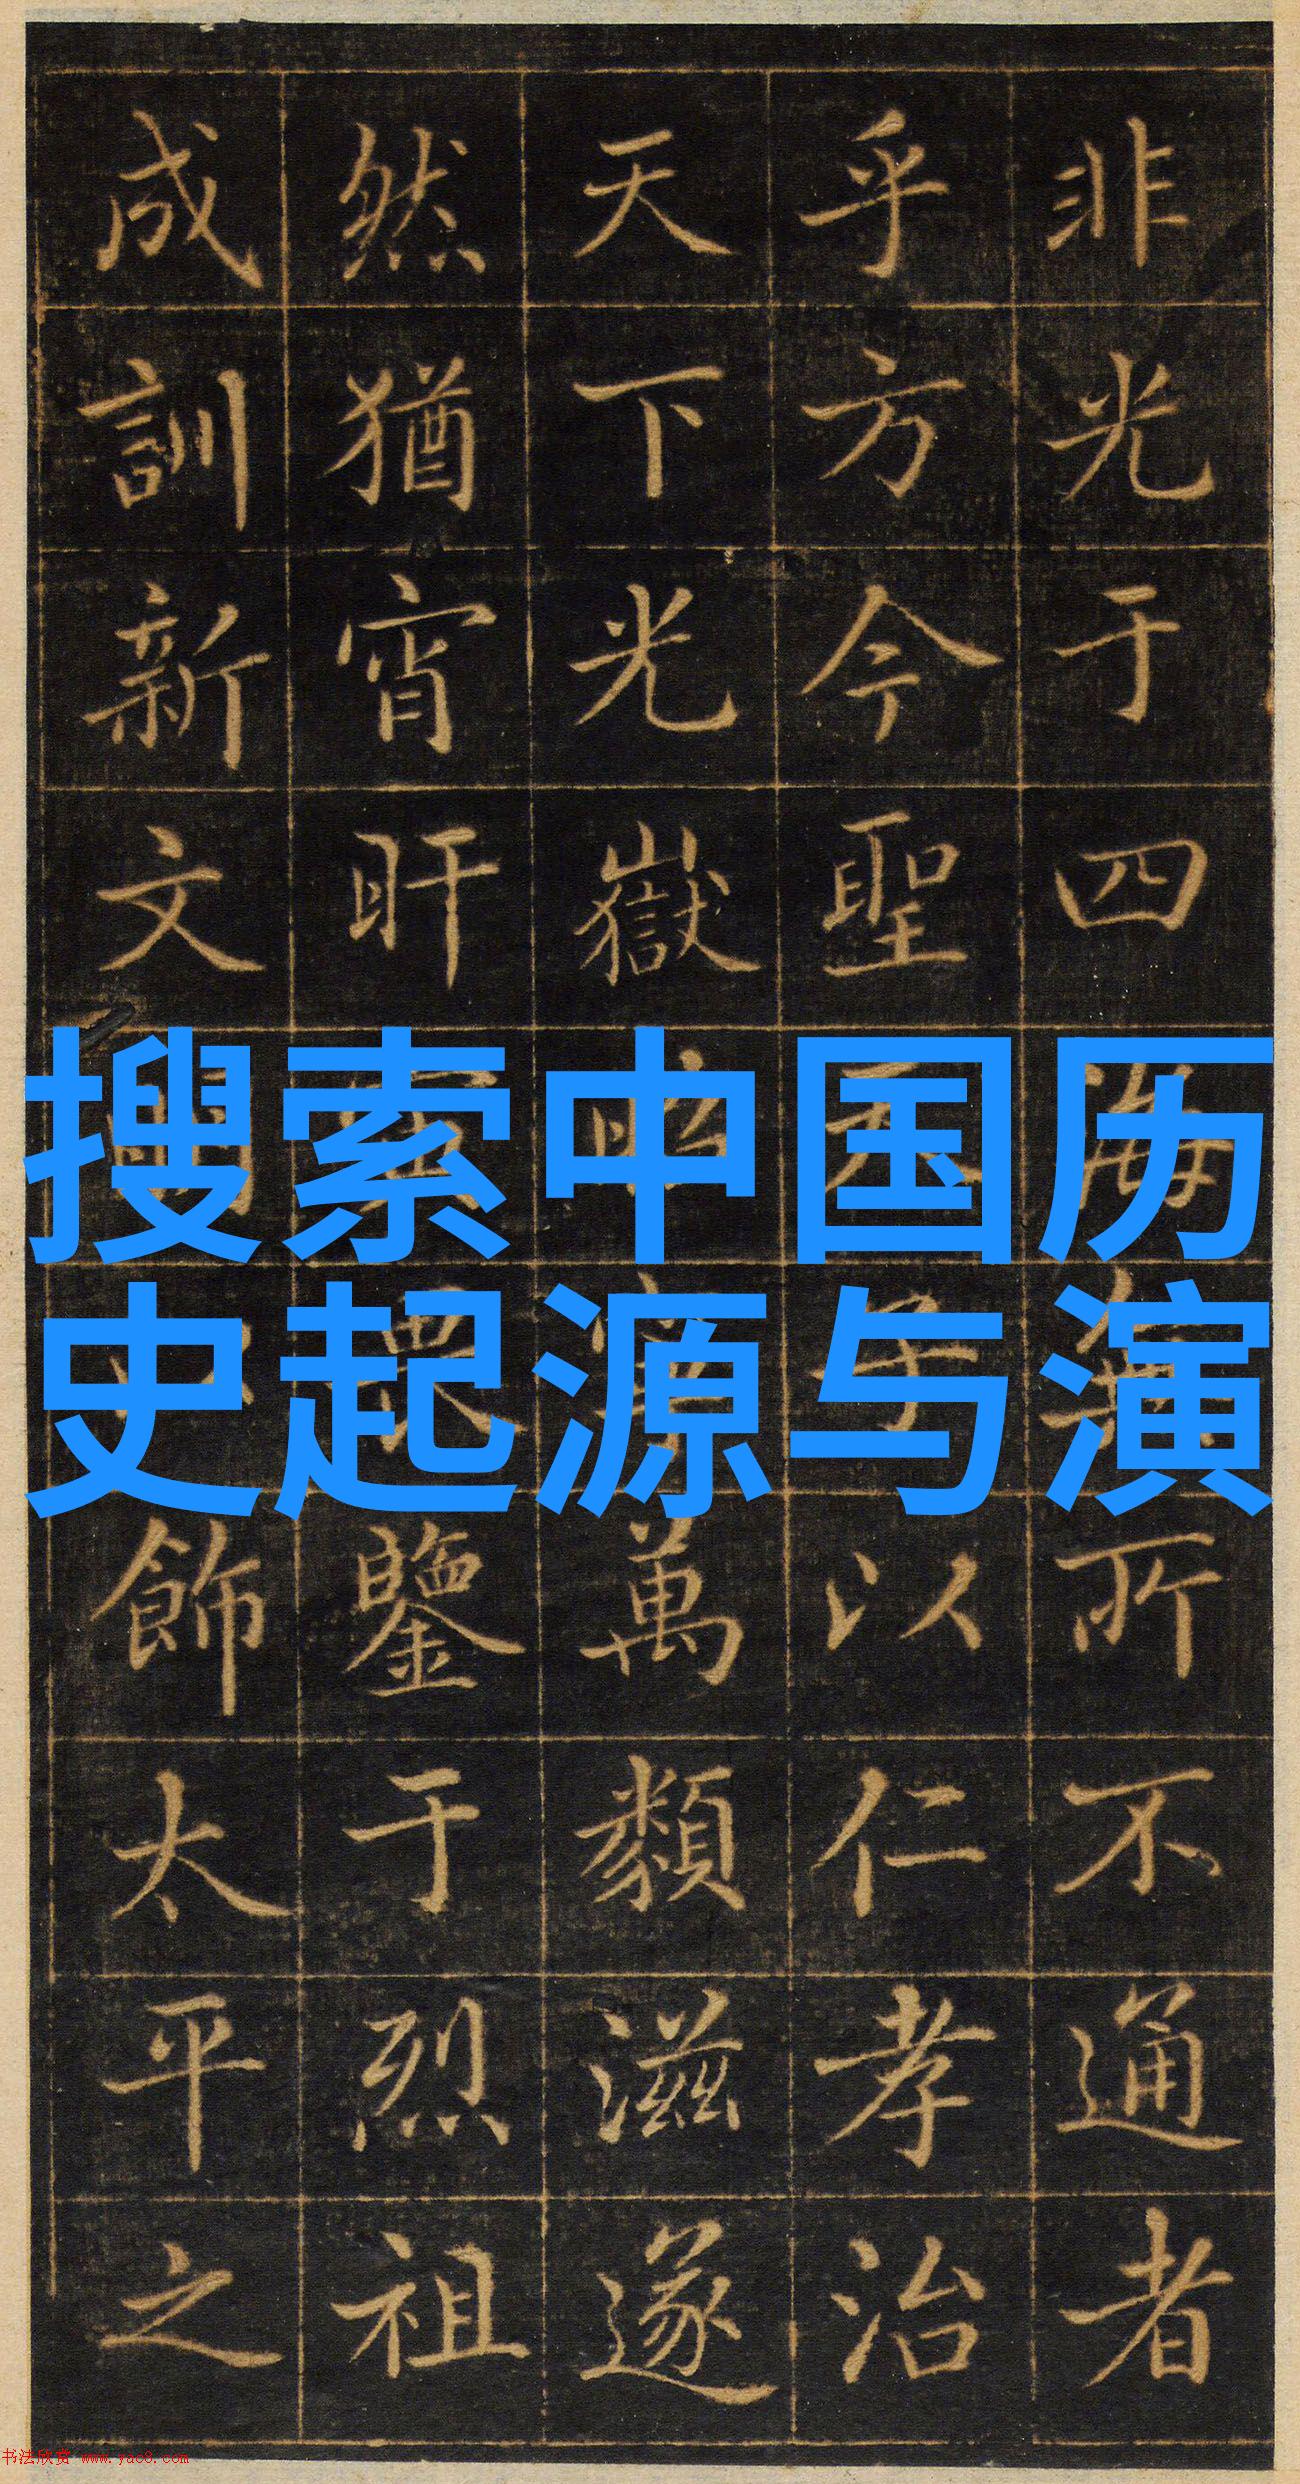 非光于四海無所不通者
乎方今聖天子以仁孝治
天下光嶽萬類滋遂
然猶宵旰鑒于烈祖
成訓新文飾太平之
搜索中国历
史起源与演
书法欣赏 www.yac8.com